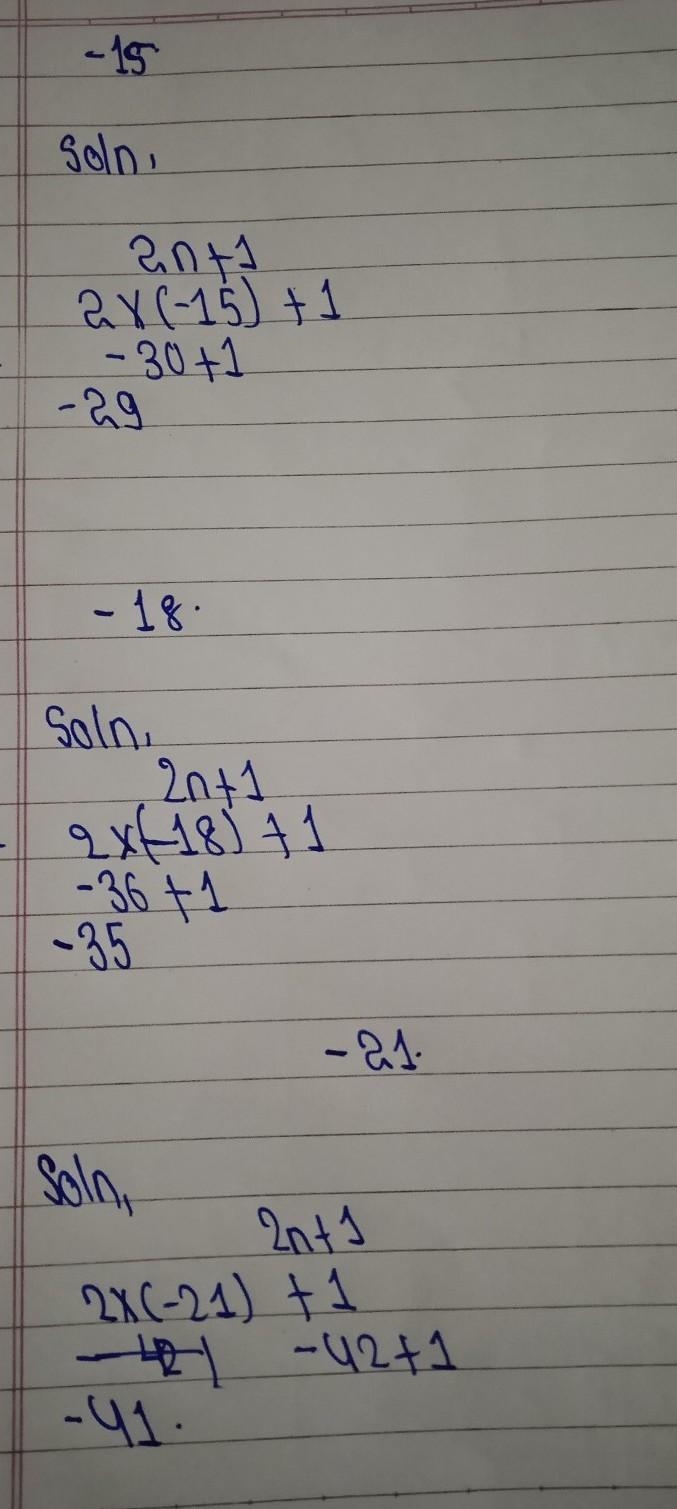 -15
Soln,
2n+1
2x(-15) +1
-30+1
-29
-18.
Soln,
2n+1
2x(-18) +1
-36+1
-35
-21.
Soln,
2n+1
2x(-21) +1
-42+1
-41.